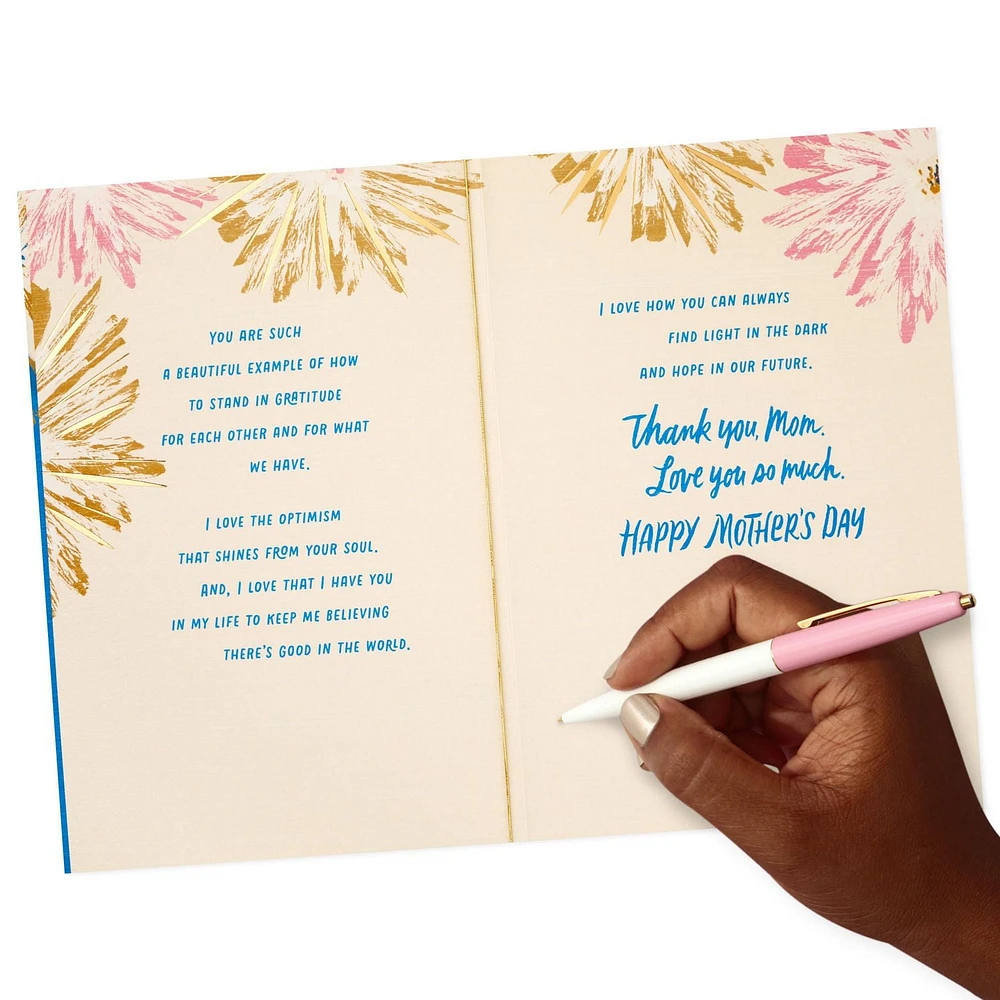 YOU ARE SUCH
A BEAUTIFUL EXAMPLE OF HOW
TO STAND IN GRATITUDE
FOR EACH OTHER AND FOR WHAT
WE HAVE.
I LOVE THE OPTIMISM
THAT SHINES FROM YOUR SOUL.
AND, I LOVE THAT I HAVE YOU
IN MY LIFE TO KEEP ME BELIEVING
THERE'S GOOD IN THE WORLD.
I LOVE HOW YOU CAN ALWAYS
FIND LIGHT IN THE DARK
AND HOPE IN OUR FUTURE.
Thank you, Mom.
Love you so much.
HAPPY MOTHER'S DAY